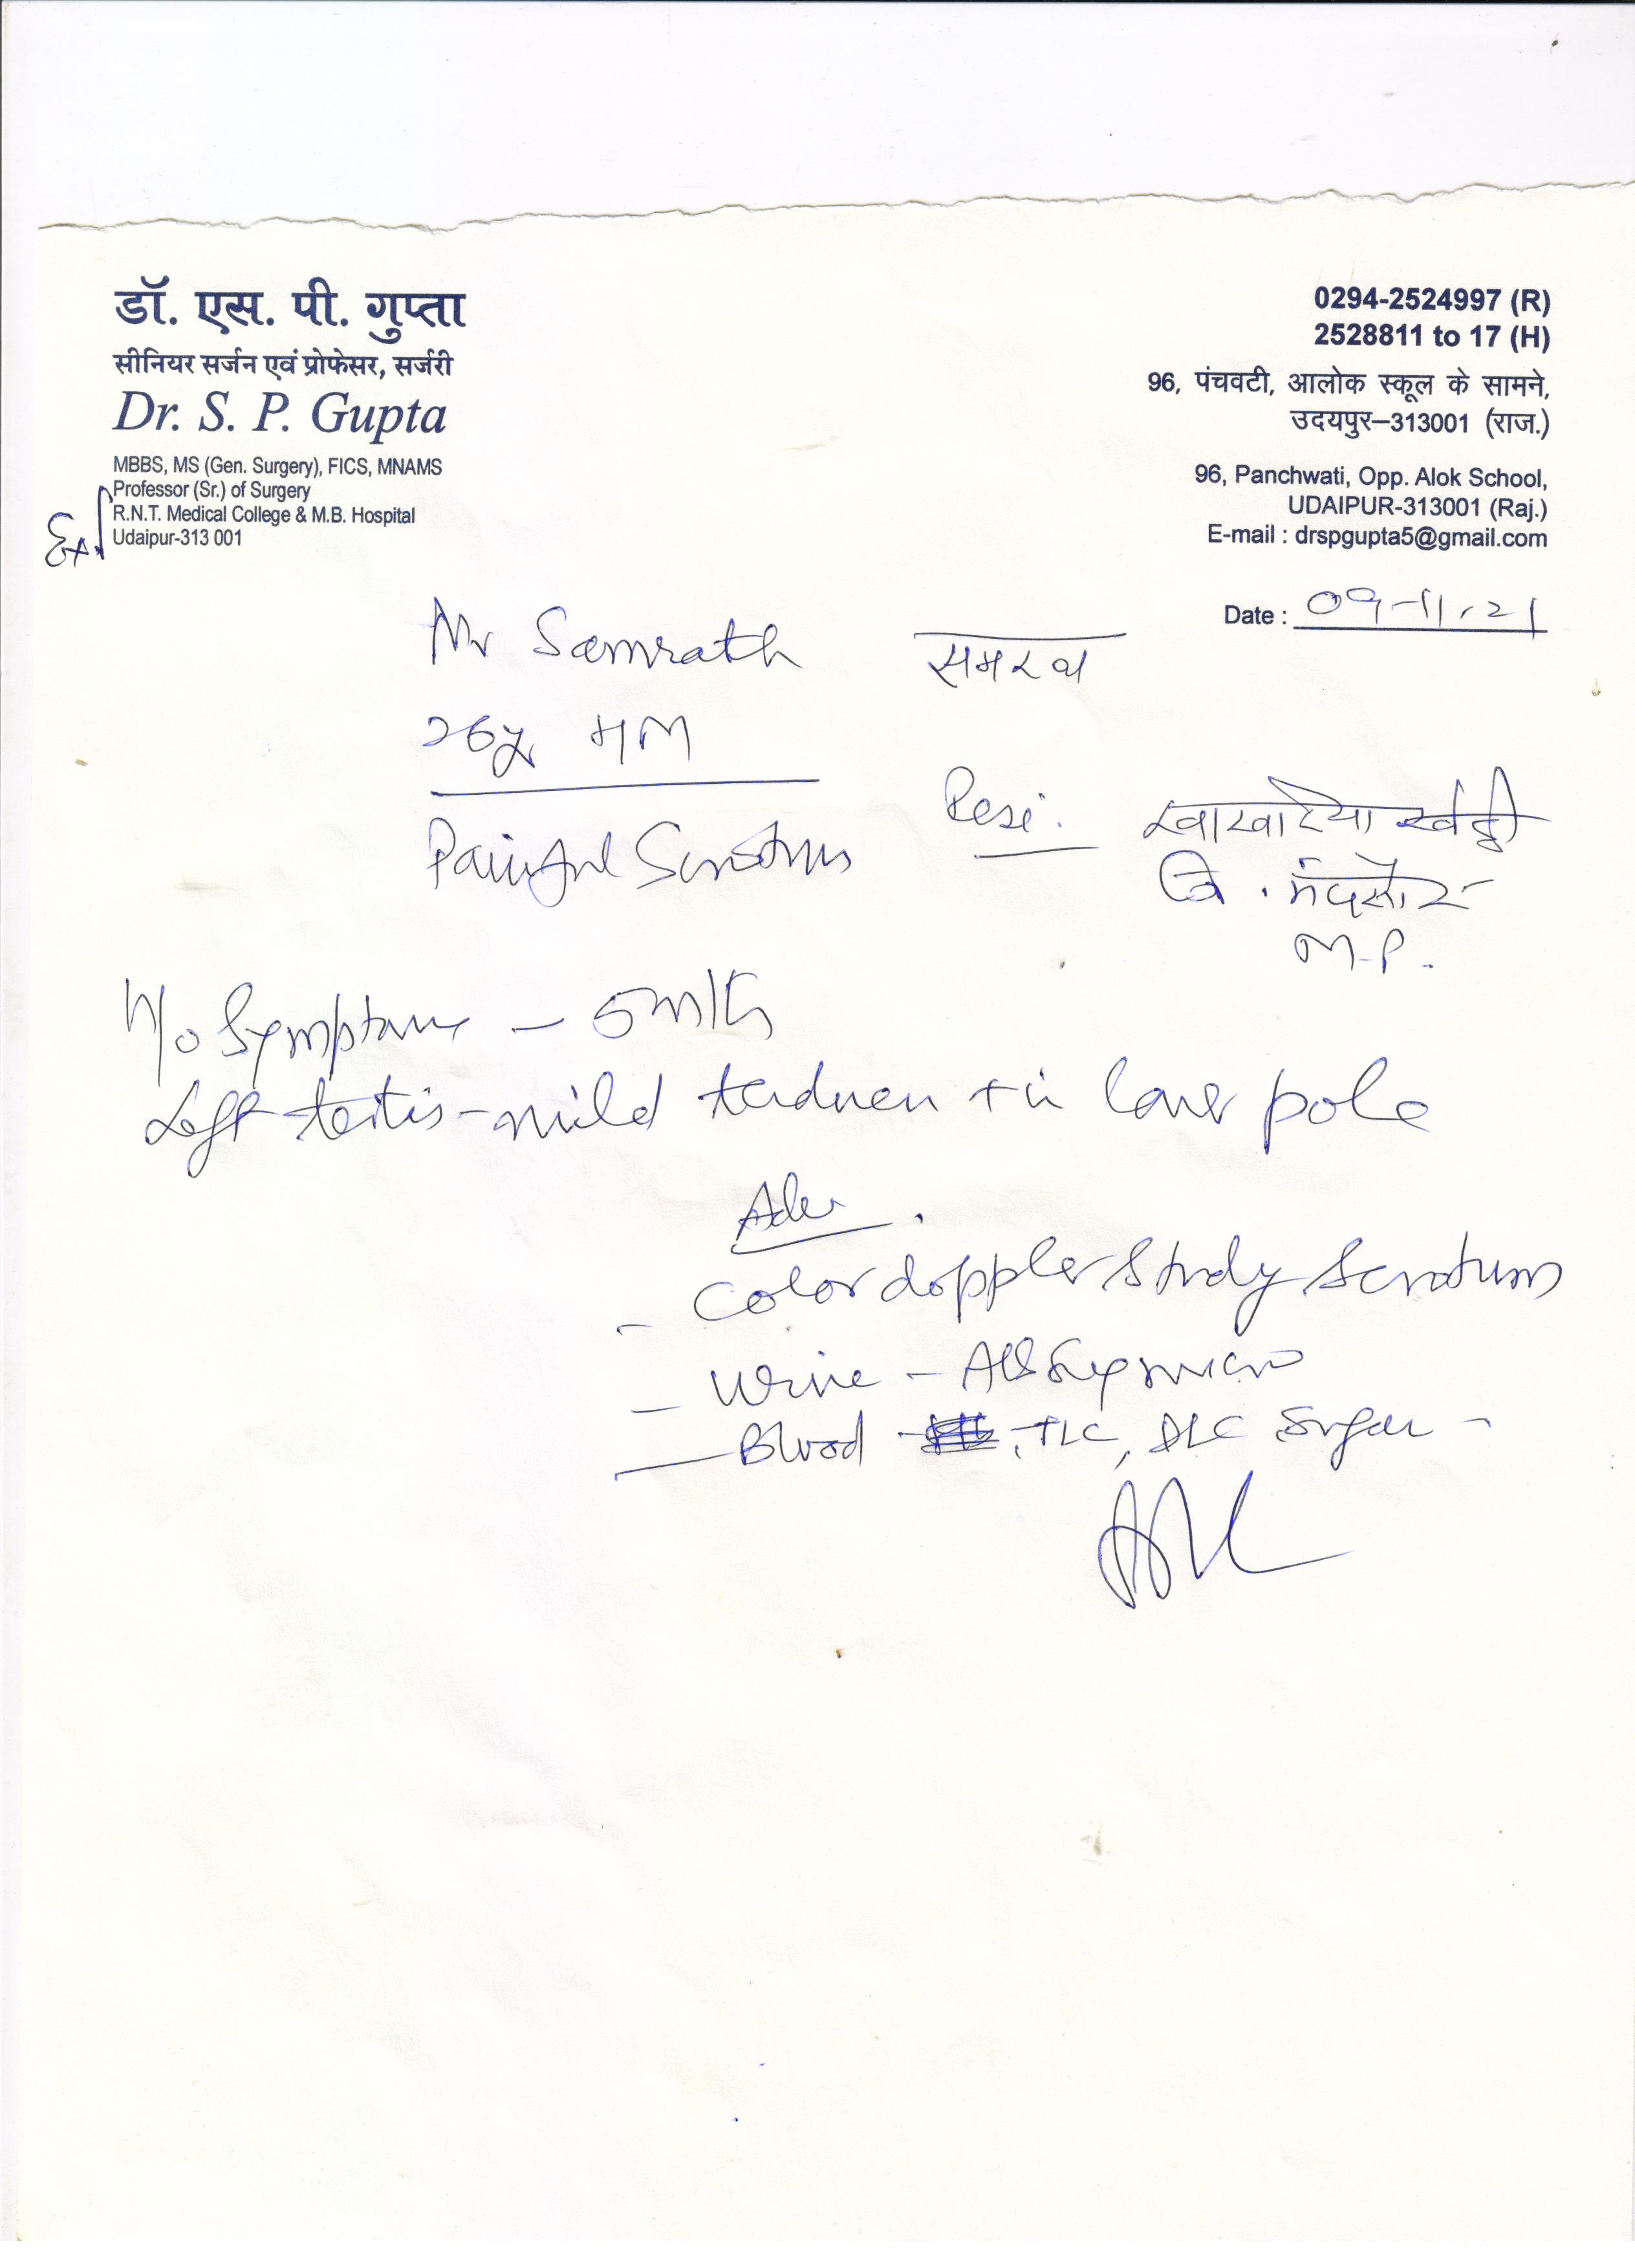 डॉ. एस. पी. गुप्ता
सीनियर सर्जन एवं प्रोफेसर, सर्जरी
Dr. S. P. Gupta
MBBS, MS (Gen. Surgery), FICS, MNAMS
Ex. Professor (Sr.) of Surgery
R.N.T. Medical College & M.B. Hospital
Udaipur-313 001
0294-2524997 (R)
2528811 to 17 (H)
96, पंचवटी, आलोक स्कूल के सामने,
उदयपुर–313001 (राज.)
96, Panchwati, Opp. Alok School,
UDAIPUR-313001 (Raj.)
E-mail : drspgupta5@gmail.com
Date : 09-11-21
Mr Samrath समरथ
26y
Painful Scrotum
Resi:
जि. मंदसौर
M.P.
H/o Symptoms - 5
Left testis - mild + in lower pole
Adv.
- Color doppler Study Scrotum
- Urine -
- Blood - TLC, DLC Sugar -